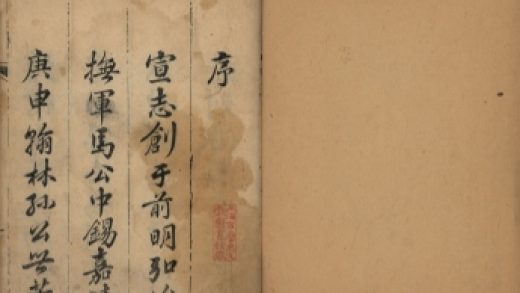 序
宣志創于前明弘
撫軍馬公中錫嘉
庚申翰林孫公世